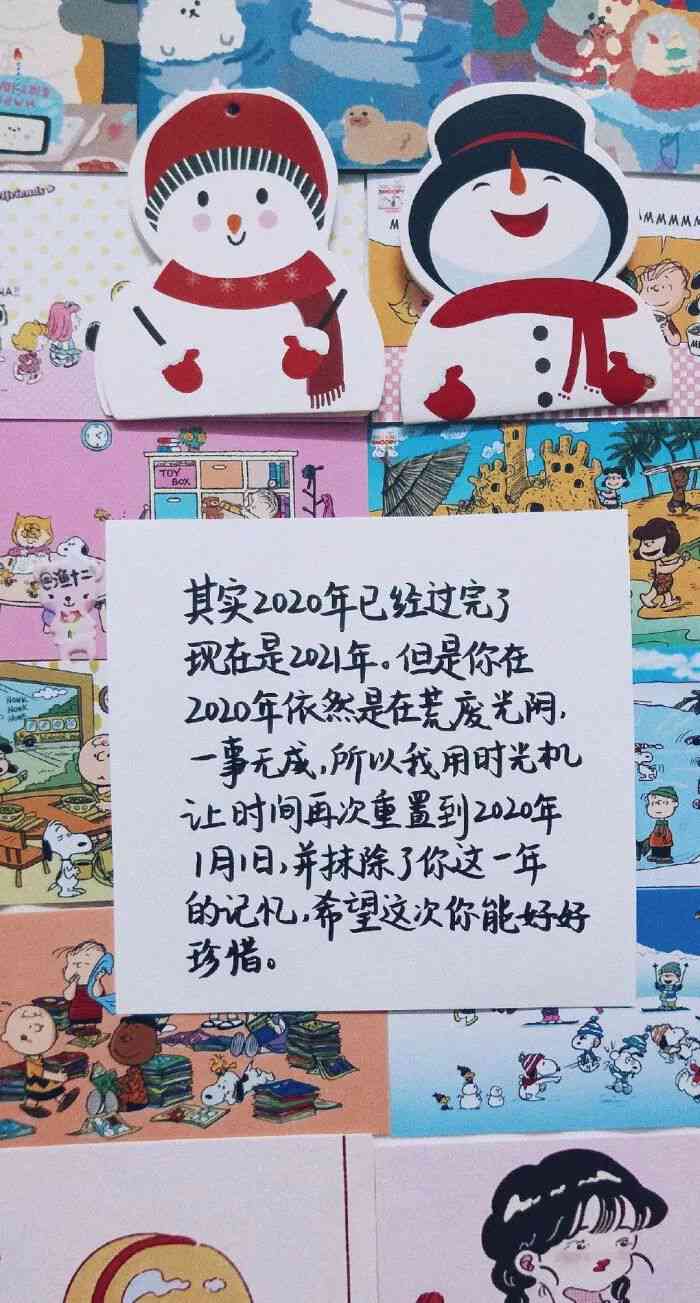 MMMMMM
TOY
BOX
@渔十二
HONK
HONK
HONK
其实2020年已经过完了
现在是2021年。但是你在
2020年依然是在荒废光阴,
一事无成,所以我用时光机
让时间再次重置到2020年
1月1日,并抹除了你这一年
的记忆,希望这次你能好好
珍惜。